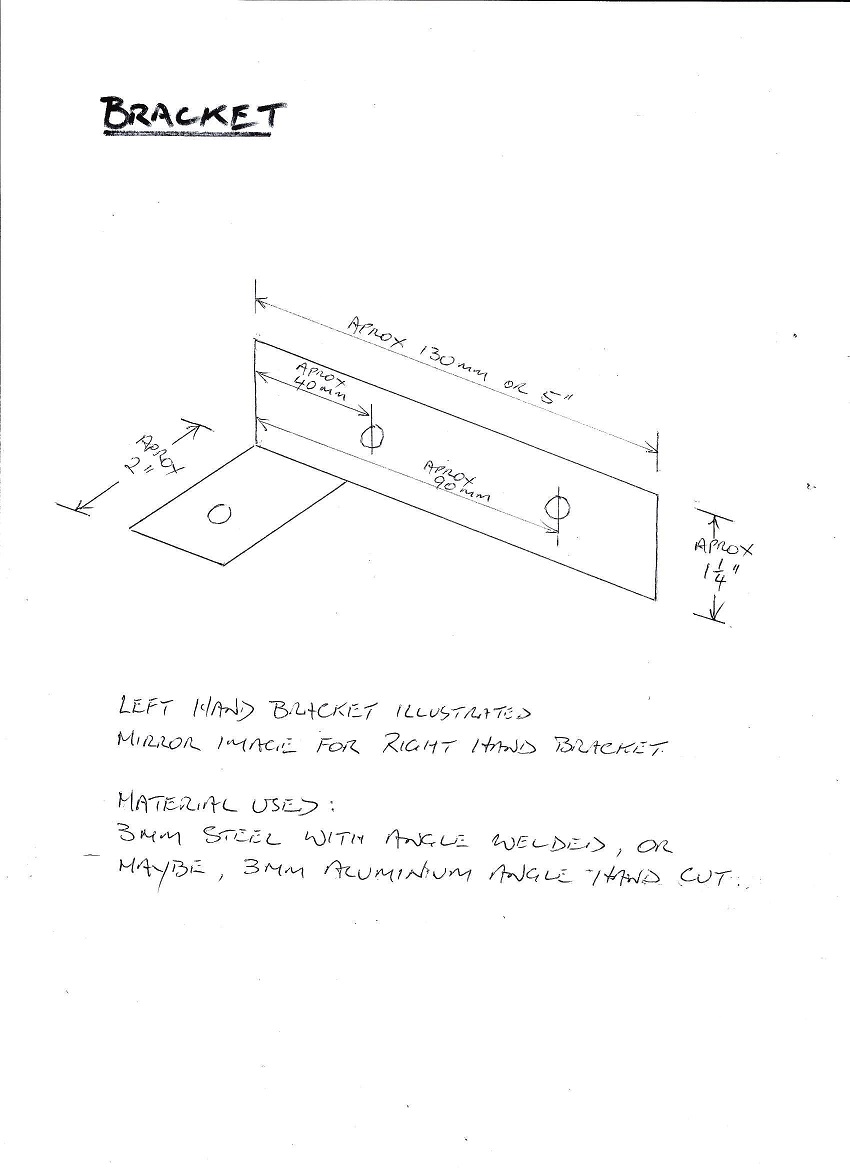 BRACKET
APROX 130mm OR 5"
APROX
40mm
APROX
2"
APROX
90mm
APROX
1 1/4"
LEFT HAND BRACKET ILLUSTRATED
MIRROR IMAGE FOR RIGHT HAND BRACKET.
MATERIAL USED:
3MM STEEL WITH ANGLE WELDED, OR
MAYBE, 3MM ALUMINIUM ANGLE HAND CUT.